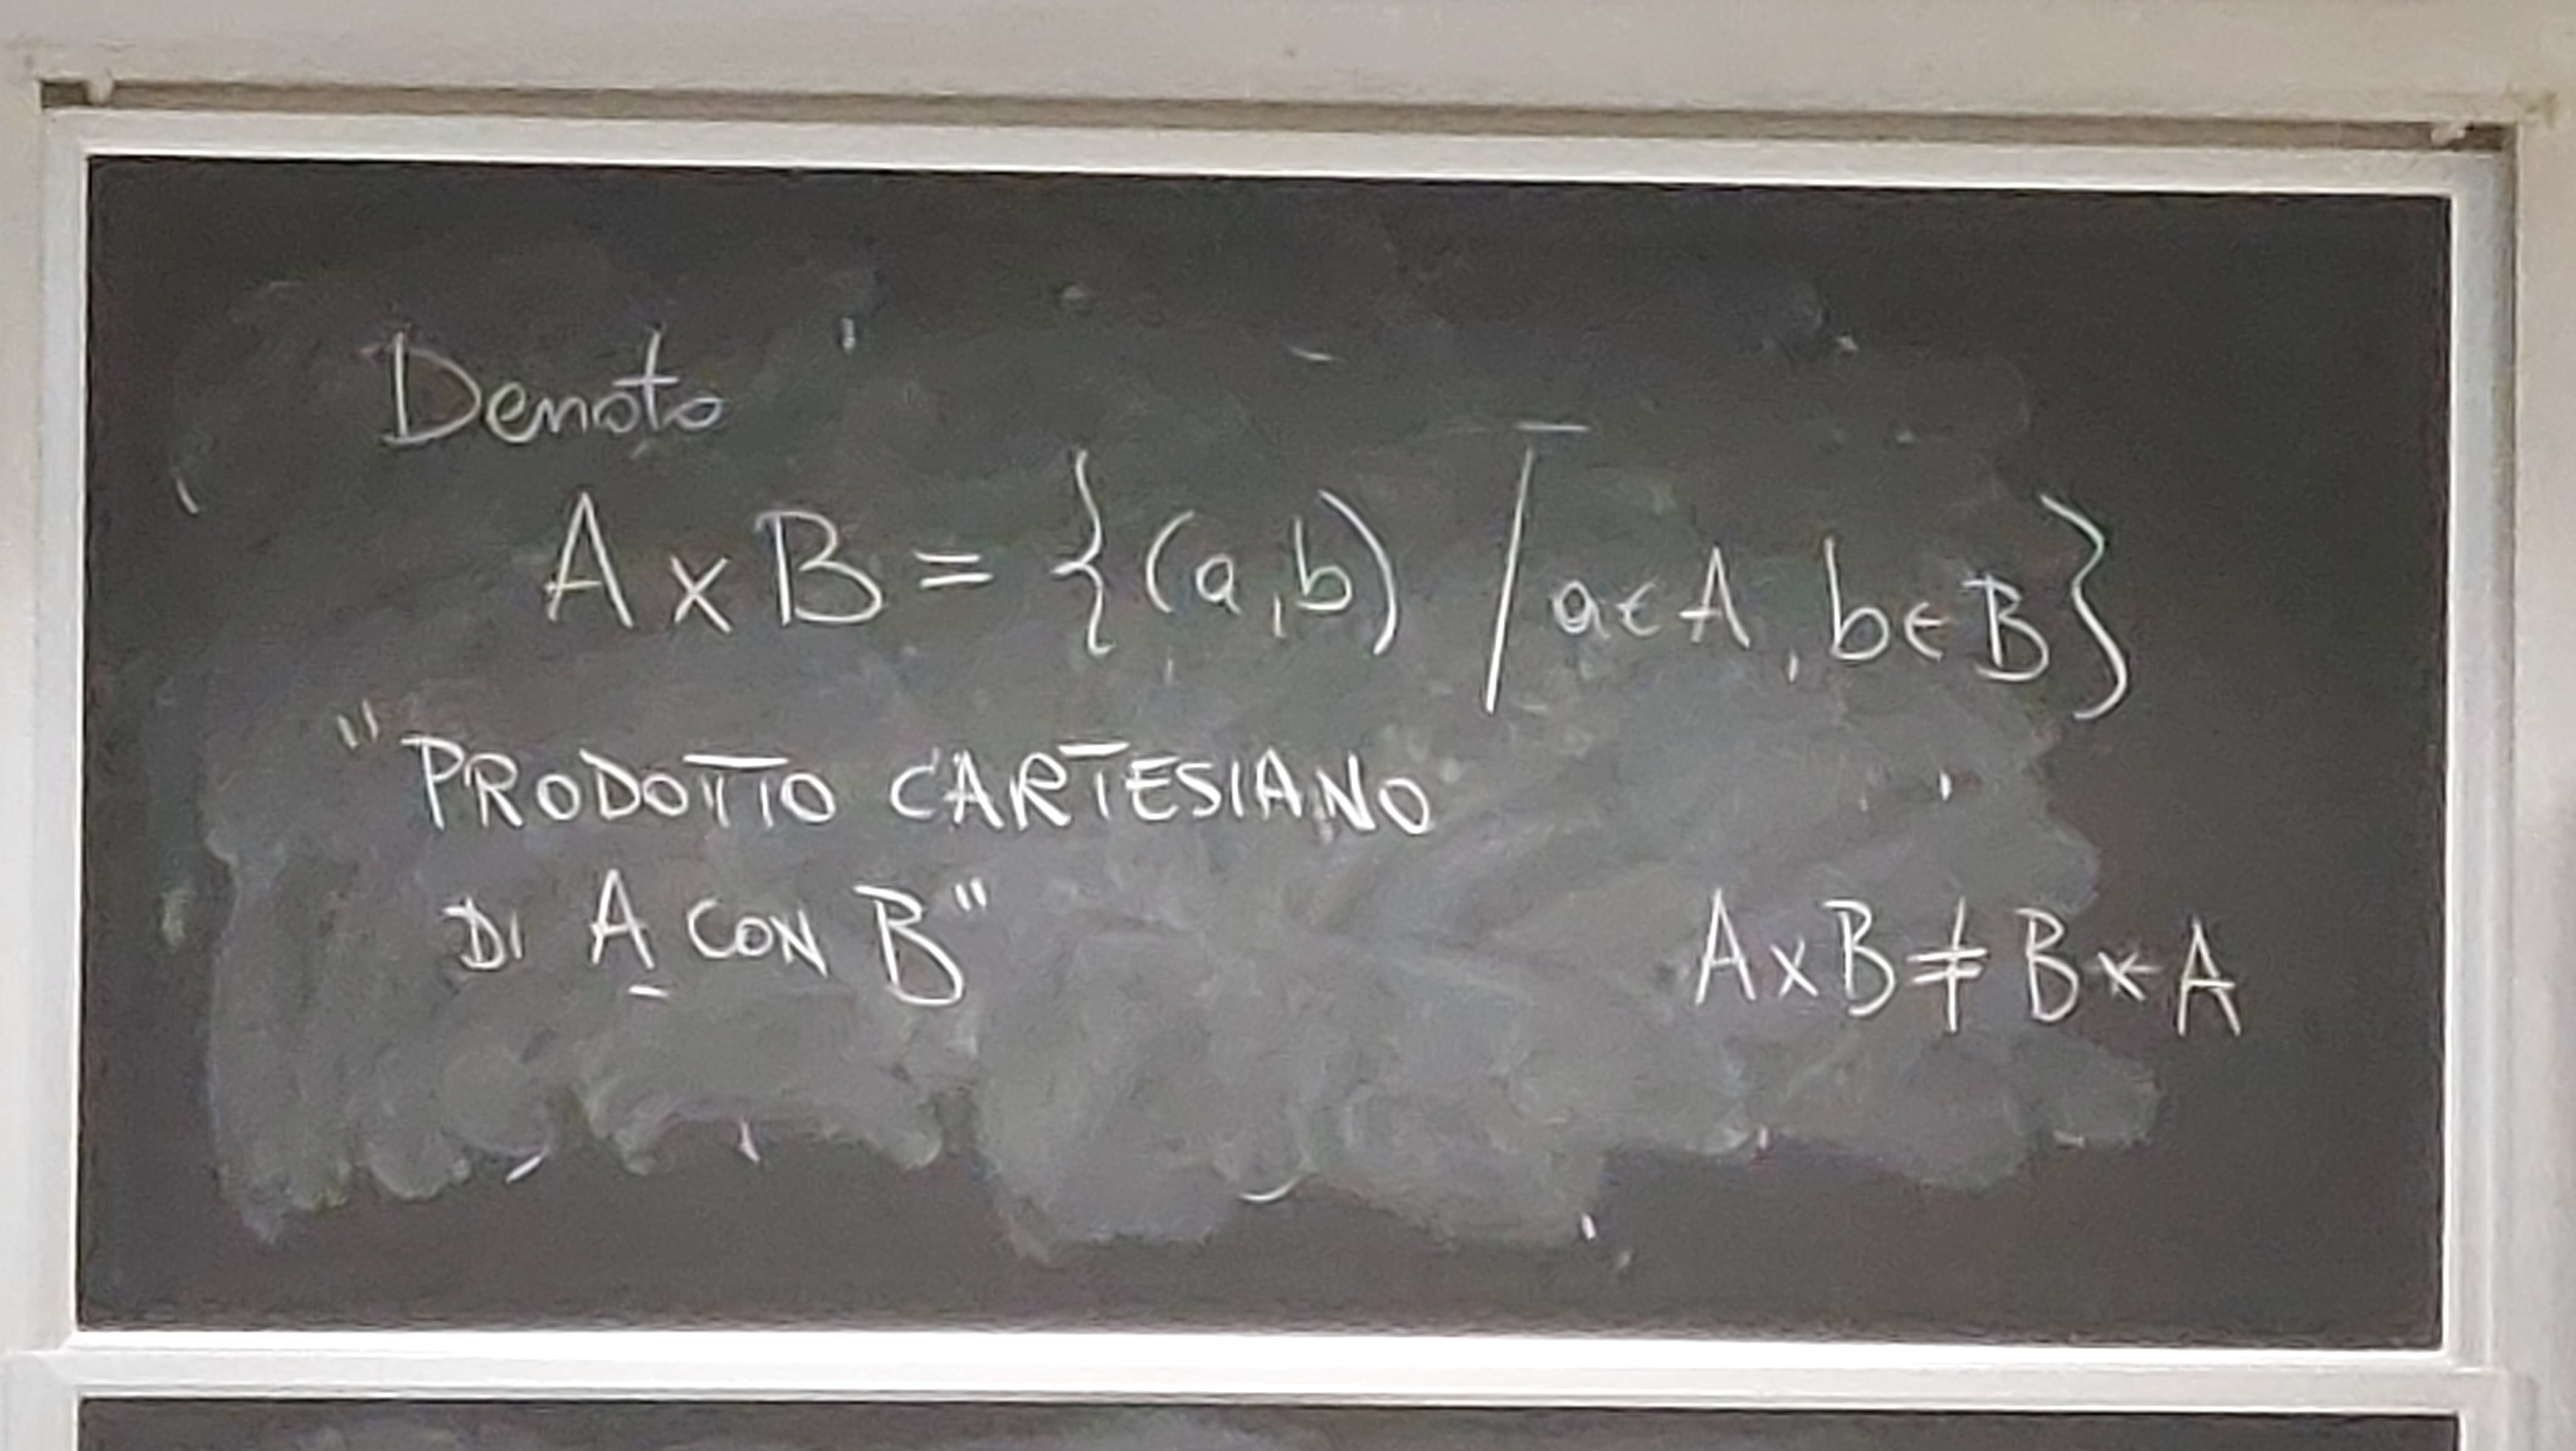 Denoto
A x B = {(a,b) / a∈A, b∈B}
"PRODOTTO CARTESIANO
DI A CON B"
AxB≠BxA